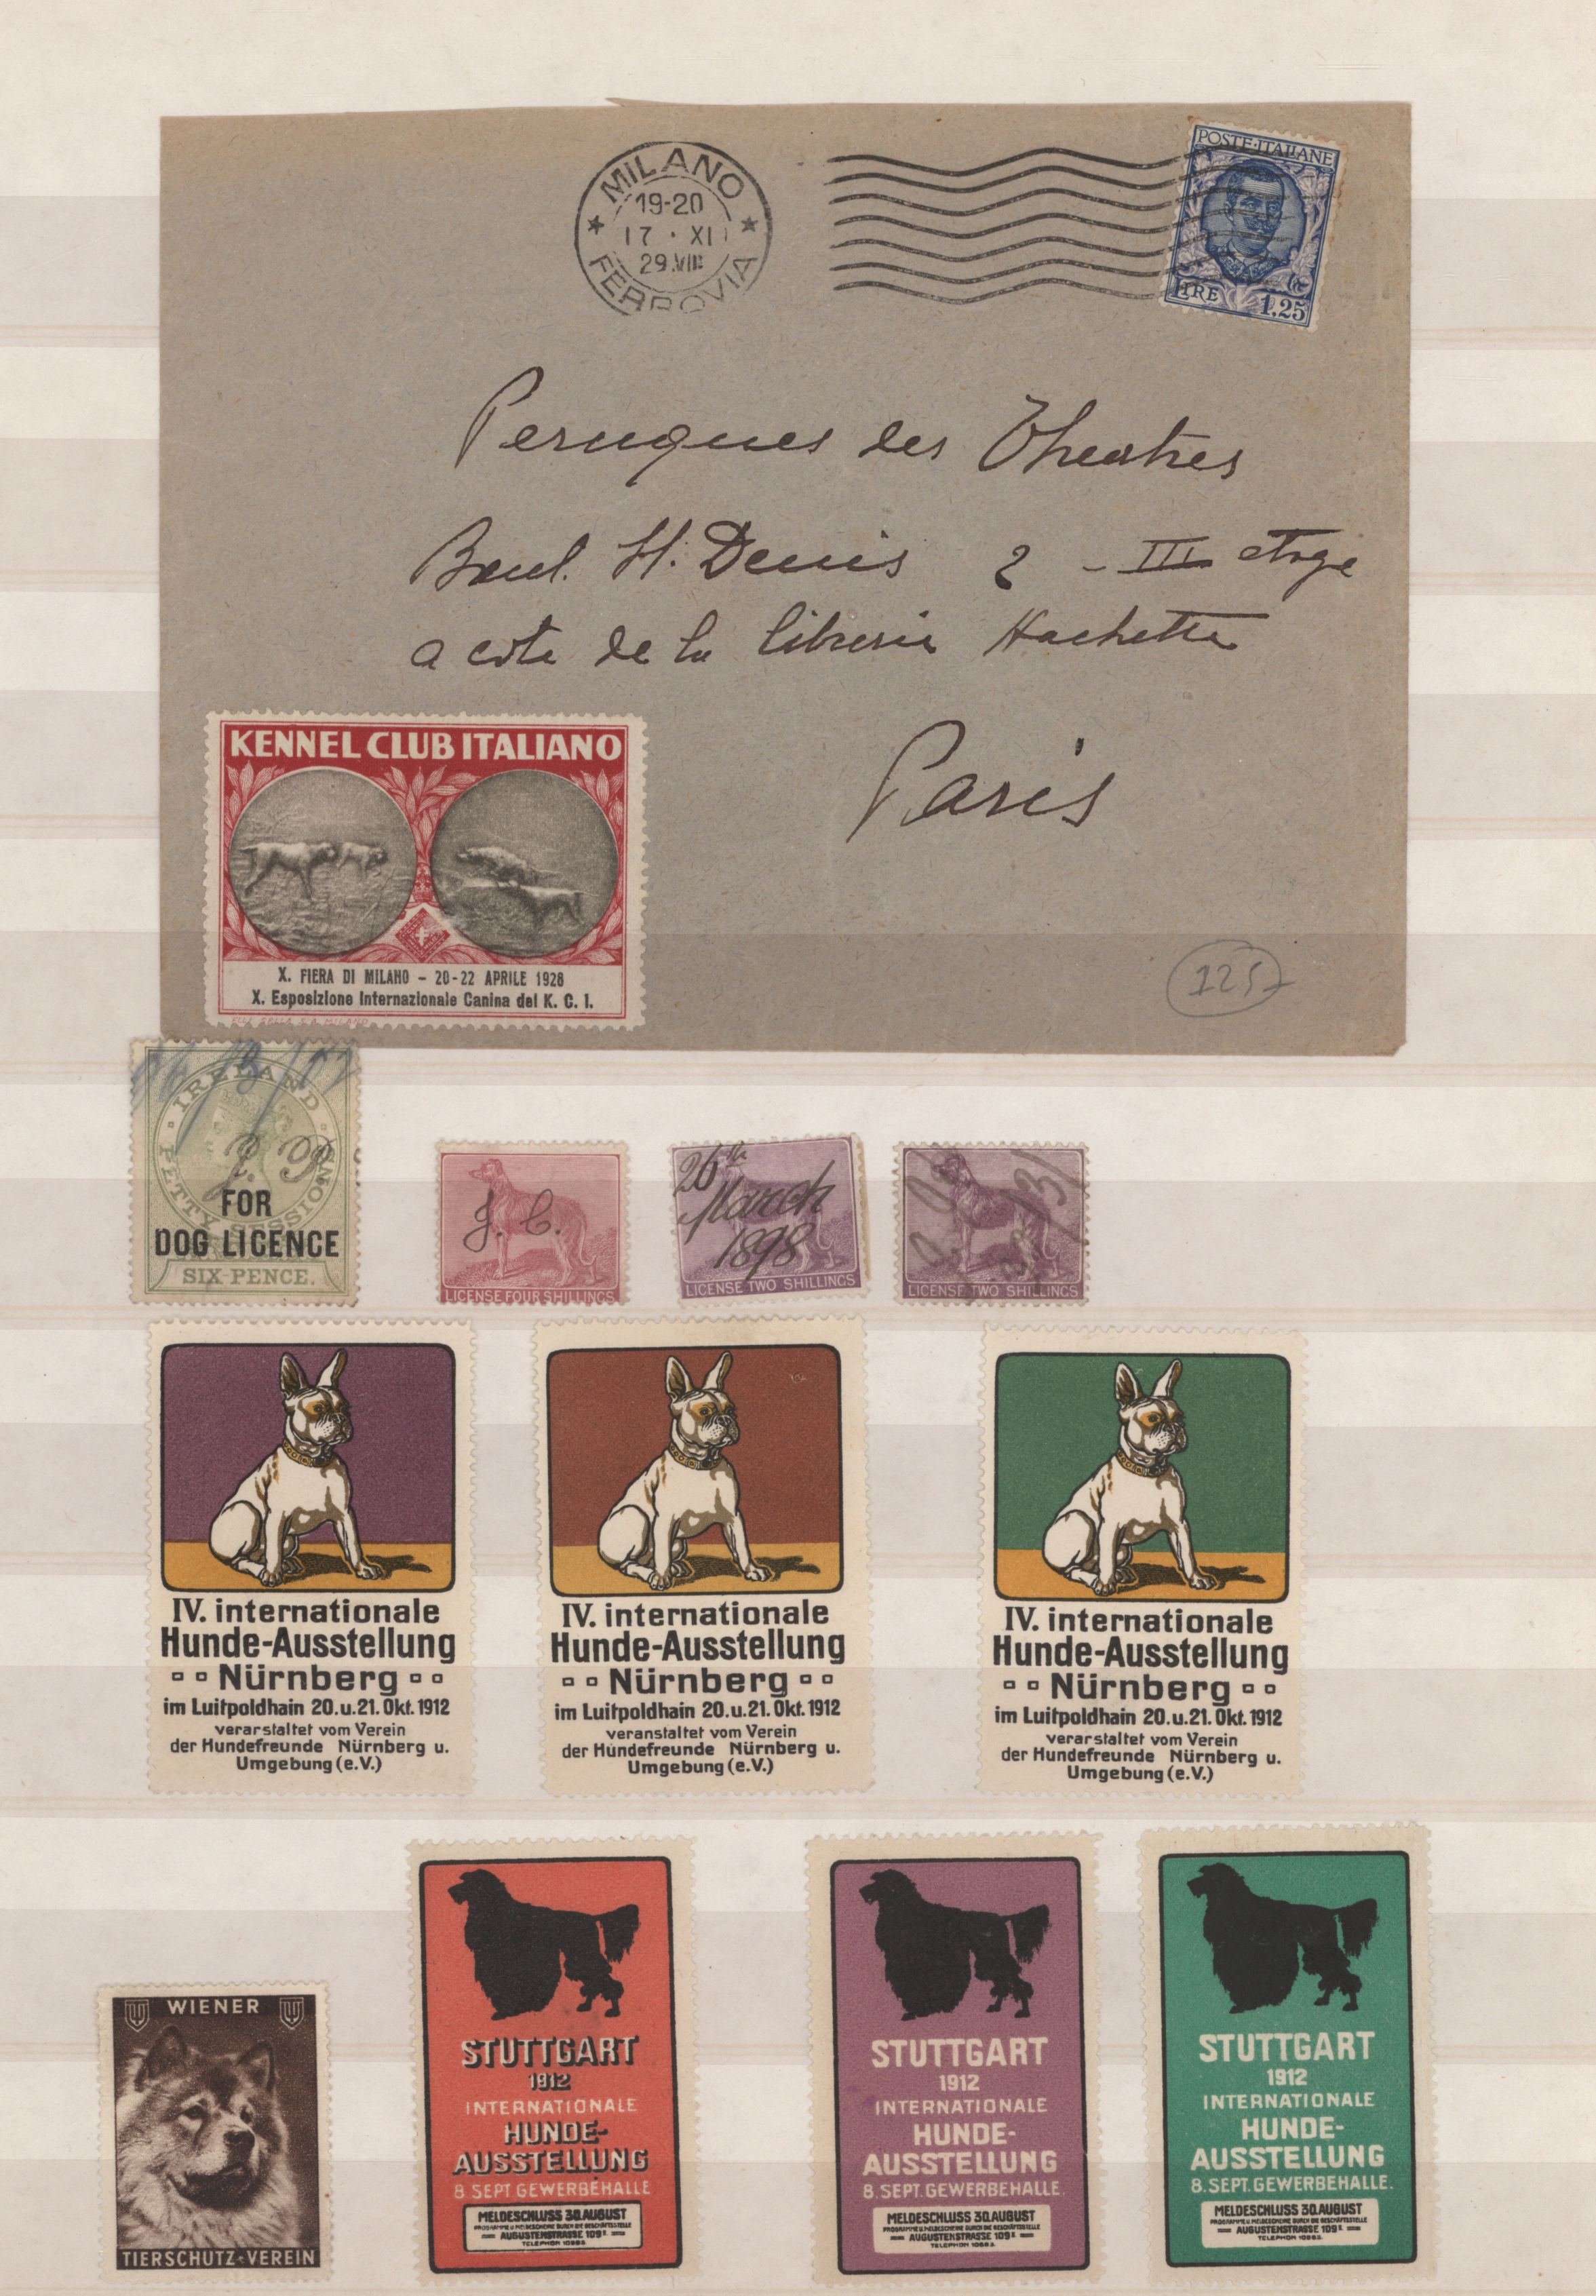 MILANO
19-20
17 · XI
29.VIII
FERROVIA
POSTE·ITALIANE
LIRE 1.25
Peruques des Theatres
Boul. St. Denis 2 - III etage
a cote de la libreria Hachette
Paris
125
KENNEL CLUB ITALIANO
X. FIERA DI MILANO - 20-22 APRILE 1928
X. Esposizione Internazionale Canina del K. C. I.
IRELAND
PETTY SESSIONS
FOR
DOG LICENCE
SIX-PENCE.
J. C.
LICENSE FOUR SHILLINGS
26th
March
1898
LICENSE TWO SHILLINGS
LICENSE TWO SHILLINGS
IV. internationale
Hunde-Ausstellung
Nürnberg
im Luitpoldhain 20. u. 21. Okt. 1912
verarstaltet vom Verein
der Hundefreunde Nürnberg u.
Umgebung (e.V.)
IV. internationale
Hunde-Ausstellung
Nürnberg
im Luitpoldhain 20. u. 21. Okt. 1912
veranstaltet vom Verein
der Hundefreunde Nürnberg u.
Umgebung (e.V.)
IV. internationale
Hunde-Ausstellung
Nürnberg
im Luitpoldhain 20. u. 21. Okt. 1912
verarstaltet vom Verein
der Hundefreunde Nürnberg u.
Umgebung (e.V.)
WIENER
TIERSCHUTZ-VEREIN
STUTTGART
1912
INTERNATIONALE
HUNDE-
AUSSTELLUNG
8. SEPT. GEWERBEHALLE
MELDESCHLUSS 30. AUGUST
PROGRAMME U. MELDESCHEINE DURCH DIE GESCHÄFTSSTELLE
AUGUSTENSTRASSE 109
TELEPHON 10863.
STUTTGART
1912
INTERNATIONALE
HUNDE-
AUSSTELLUNG
8. SEPT. GEWERBEHALLE.
MELDESCHLUSS 30. AUGUST
PROGRAMME U. MELDESCHEINE DURCH DIE GESCHÄFTSSTELLE
AUGUSTENSTRASSE 109
TELEPHON 10863.
STUTTGART
1912
INTERNATIONALE
HUNDE-
AUSSTELLUNG
8. SEPT. GEWERBEHALLE.
MELDESCHLUSS 30. AUGUST
PROGRAMME U. MELDESCHEINE DURCH DIE GESCHÄFTSSTELLE
AUGUSTENSTRASSE 109
TELEPHON 10863.